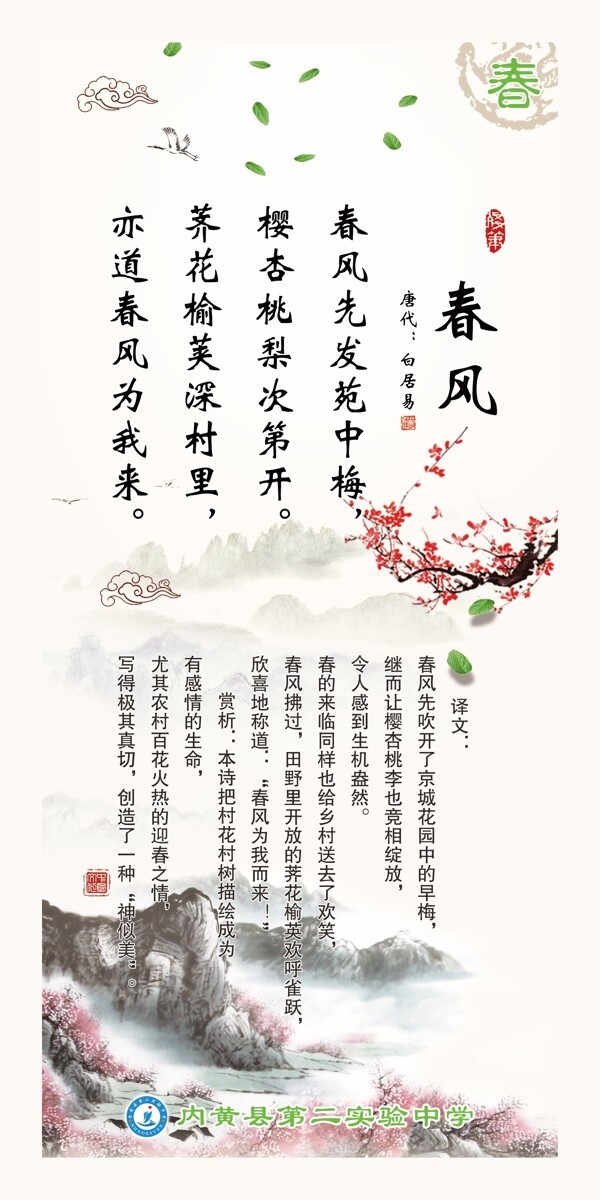 春
春风
唐代：白居易
春风先发苑中梅，
樱杏桃梨次第开。
荠花榆荚深村里，
亦道春风为我来。
译文：
春风先吹开了京城花园中的早梅，
继而让樱杏桃李也竞相绽放，
令人感到生机盎然。
春的来临同样也给乡村送去了欢笑，
春风拂过，田野里开放的荠花榆英欢呼雀跃，
欣喜地称道：“春风为我而来！”
赏析：本诗把村花村树描绘成为
有感情的生命，
尤其农村百花火热的迎春之情，
写得极其真切，创造了一种“神似美”。
内黄县第二实验中学